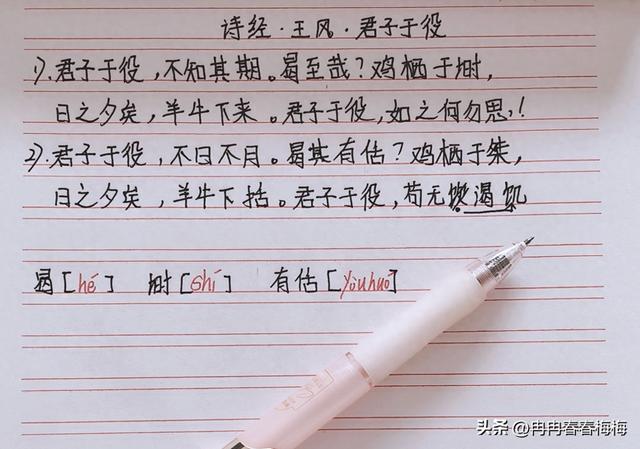 诗经·王风·君子于役
1).君子于役，不知其期。曷至哉？鸡栖于埘，
日之夕矣，羊牛下来。君子于役，如之何勿思！
2).君子于役，不日不月。曷其有佸？鸡栖于桀，
日之夕矣，羊牛下括。君子于役，苟无饥渴
曷[hé] 埘[shí] 有佸[yòuhuó]
头条 @冉冉春春梅梅